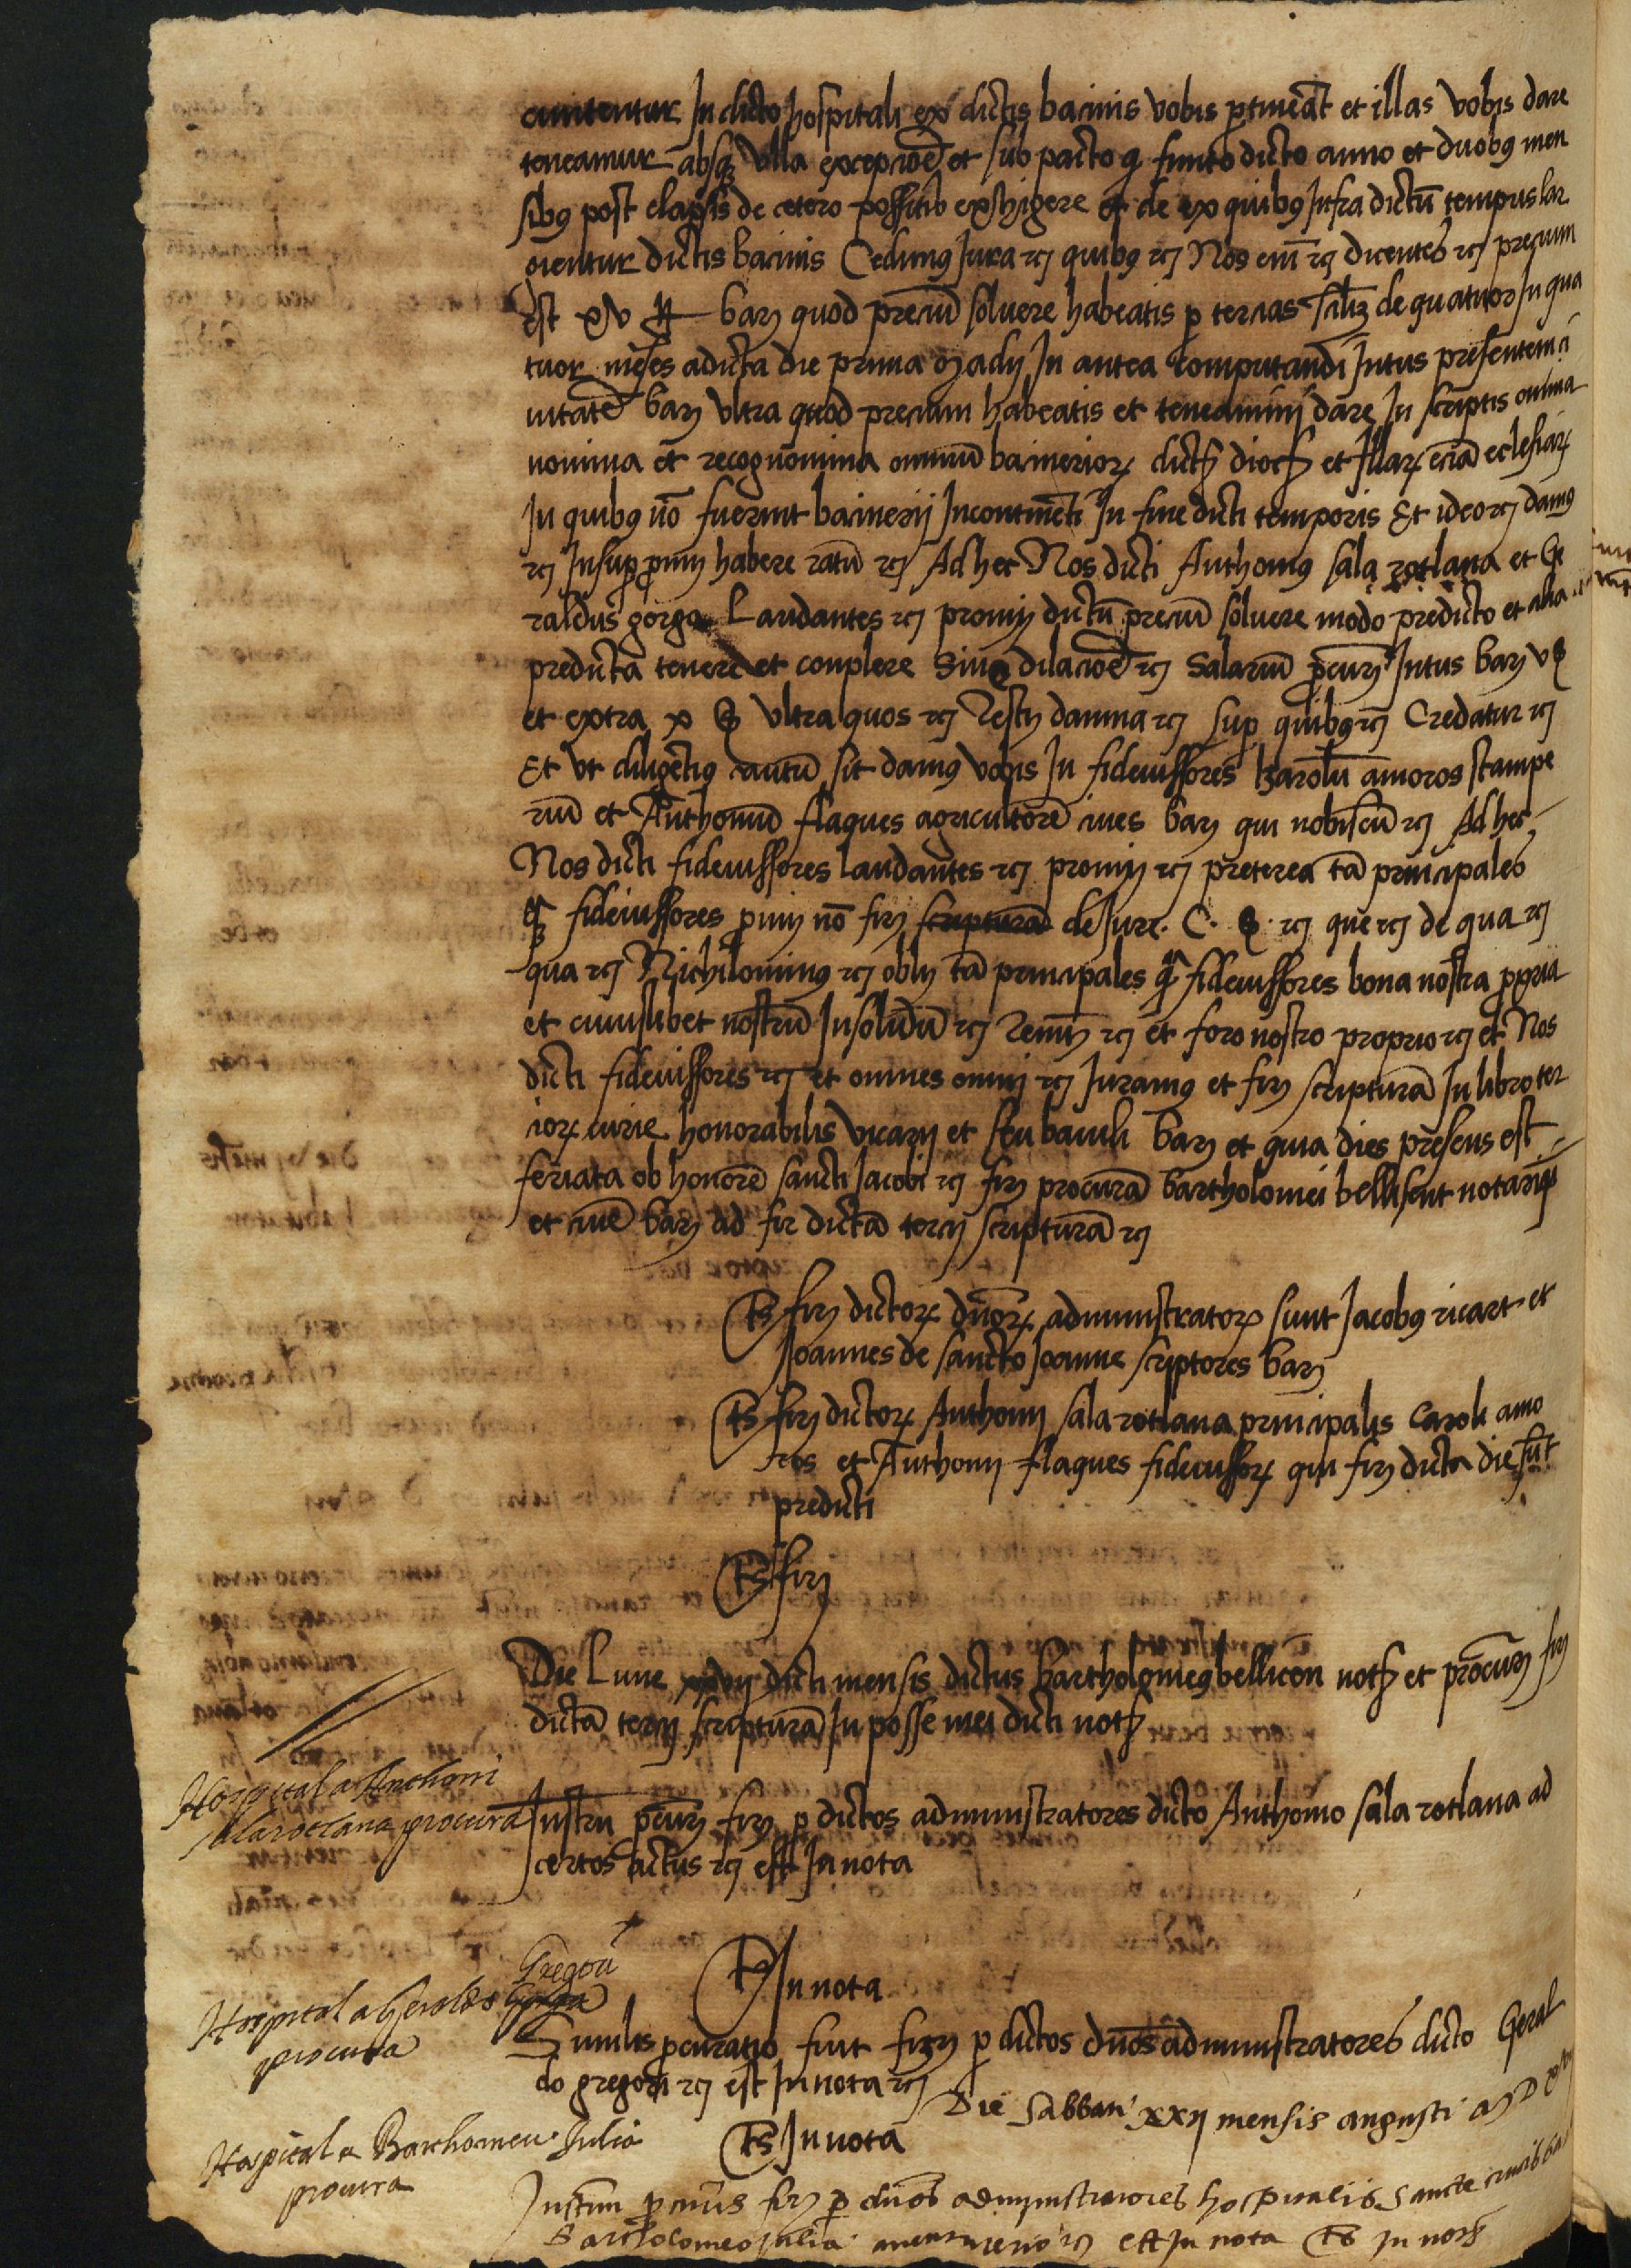 In dicto hospitali ex dictis bacinis vobis ptineāt et illas vobis dare
teneamur absqʒ vlla excepcioē et sub pacto q finito dicto anno et duobꝯ men
sibꝯ post elapsis de cetero possitis exhigere et de ex quibꝯ Infra dictū tempus lar
gientur dictis bacinis Cedimꝯ Jura rcͥ quibꝯ rcͥ Nos em̄ rcͥ dicentes rcͥ precium
est xv ₶ barͥ quod preciū soluere habeatis p tercias silʒ de quatuor In qua
tuor meses a dicta die prima madij In antea computandi Intus presentem ci
uitatē barͥ vltra quod precium habeatis et teneamini dare In scriptis omnia
nomina et recognomina omniū bacineriorꝝ dicte dioc et Illarꝝ eciā eclesiarꝝ
In quibꝯ nō fuerint bacinerij Incontinēti In fine dicti temporis Et ideo rcͥ damꝯ
rcͥ Insup pmͥ habere ratū rcͥ Ad hec Nos dicti Anthoniꝯ sala rotlana et Ge
raldus gorgo Laudantes rcͥ promͥ dictū preciū soluere modo predicto et alia
predicta tenere et complere sine dilacioē rcͥ Salariū pcurͥ Intus barͥ v ß
et extra x ß vltra quos rcͥ Restͥ damna rcͥ sup quibꝯ rcͥ Credatur rcͥ
Et vt diligētiꝯ cautū sit damꝯ vobis In fideiussores karolū amoros stampe
riū et Anthoniū flaques agricultorē ciues barͥ qui nobiscū rcͥ Ad hec
Nos dicti fideiussores laudantes rcͥ promͥ rcͥ preterea tā principales
qʒ fideiussores pmͥ nō firͥ scripturā de Jure. C. ß. rcͥ que rcͥ de qua rcͥ
qua rcͥ Nichilominꝯ rcͥ oblͥ tā principales q̄ fideiussores bona nostra ppria
et cuiuslibet nostrū Insolidū rcͥ Renūͥ rcͥ et foro nostro proprio rcͥ et Nos
dicti fideiussores rcͥ et omnes omnͥ rcͥ Juramꝯ et firͥ scripturā In libro ter
ciorꝝ curie honorabilis vicarij et seu baiuli barͥ et quia dies presens est
feriata ob honorē sancti Jacobi rcͥ firͥ procurā bartholomei bellisent notariū
et ciuē barͥ ad fir dictā tercij scripturā rcͥ
Ts firͥ dictorꝝ dn̄orꝝ administratorꝝ sunt Jacobꝯ ricart et
Joannes de sancto Joanne scriptores barͥ
Ts firͥ dictorꝝ Anthonij sala rotlana principalis Caroli amo
ros et Anthonij flaques fideiussorꝝ qui firͥ dicta die sūt
predicti
Ts firͥ
Die Lune xxvij dicti mensis dictus bartholomeꝯ bellicen not et procurͥ firͥ
dictā tercij scripturā In posse mei dicti not
Hospital a Anthoni
sala rotlana procura
Instrū pcurͥ firͥ p dictos administratores dicto Anthonio sala rotlana ad
certos actus rcͥ est In nota
Ts In nota
Gregori
Hospital a Geraldo
procura
Similis pcuratio fuit firͥ p dictos dn̄os administratores dicto Geral
do gregori rcͥ est In nota rcͥ
Ts In nota
Die Sabbati xxij mensis augusti
Hospital a Barthomeu Julia
procura
Instrm pcuris firͥ p dn̄os administratores hospitalis Sancte crucis
Bartholomeo Julia rcͥ est In nota Ts In nota